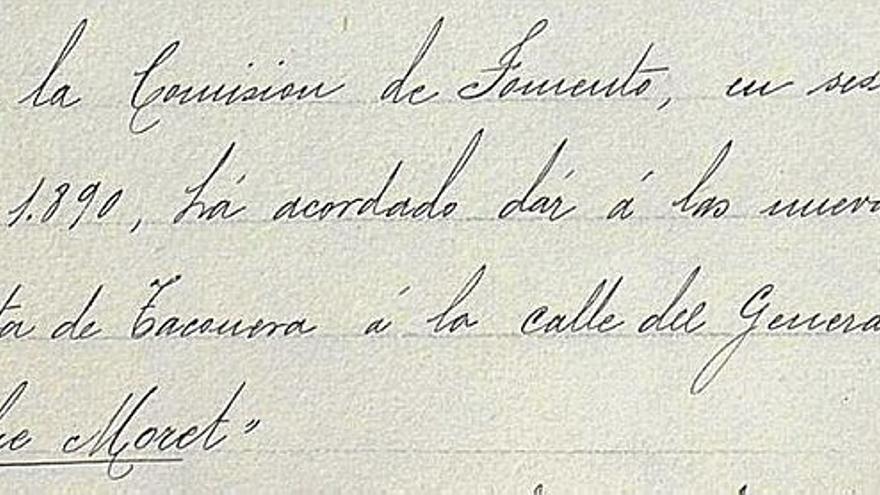 la Comision de Fomento, en ses
1.890, há acordado dár á las nueva
ta de Taconera á la calle del Genera
lle Moret"